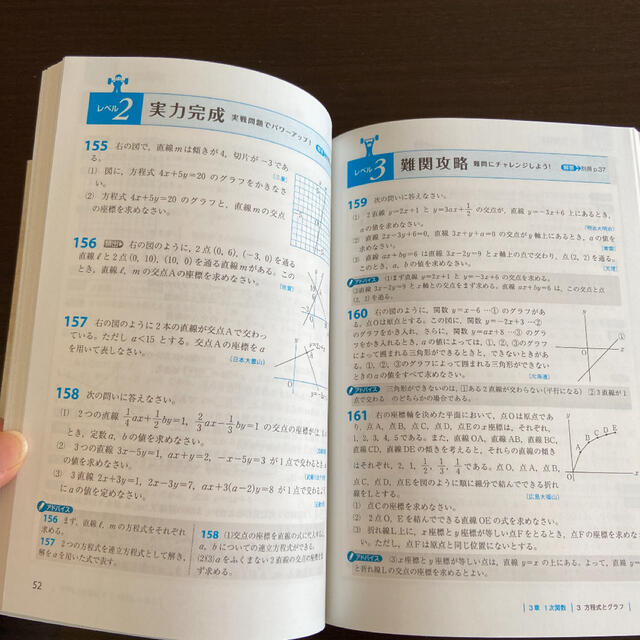 レベル2 実力完成 実戦問題でパワーアップ!
155 右の図で，直線mは傾きが4，切片が−3であ
る。
(三重)
(1) 図に，方程式4x+5y=20のグラフをかきなさ
い。
(2) 方程式4x+5y=20のグラフと，直線mの交点
の座標を求めなさい。
156 右の図のように，2点(0, 6)，(−3, 0)を通る
直線ℓと2点(0, 10)，(10, 0)を通る直線mがある。この
とき，直線ℓ，mの交点Aの座標を求めなさい。
(佐賀)
157 右の図のように2本の直線が交点Aで交わっ
ている。ただしa<15とする。交点Aの座標をa
を用いて表しなさい。
(日本大豊山)
158 次の問いに答えなさい。
(1) 2つの直線1/4ax+1/3by=1，2/3ax−1/3by=1の交点の座標が
とき，定数a，bの値を求めなさい。
(2) 3つの直線3x−5y=1，ax+y=2，−x−5y=3が1点で交わるとき
の値を求めなさい。
(3) 3直線2x+3y=1，2x−3y=7，ax+3(a−2)y=8が1点で交わる
にaの値を定めなさい。
アドバイス
156 まず，直線ℓ，mの方程式をそれぞれ
求める。
157 2つの方程式を連立方程式として解き，
解をaを用いた式で表す。
158 (1)交点の座標を直線の式に代入し
a，bについての連立方程式ができる。
(2)(3)aをふくまない2直線の交点の座標
ず求める。
52
レベル3 難関攻略 難問にチャレンジしよう! 解答 別冊p.37
159 次の問いに答えなさい。
(1) 2直線y=2x+1とy=3ax+1/2の交点が，直線y=−2x+6上にあるとき，
aの値を求めなさい。
(明治大明治)
(2) 直線2x−3y+6=0，直線3x+y+a=0の交点がy軸上にあるとき，aの値を
求めなさい。
(3) 直線ax+by=6は直線3x−2y=9とx軸上の点で交わり，点(2, 2)を通る。
このとき，a，bの値を求めなさい。
(天理)
アドバイス (1)まず直線y=2x+1とy=−2x+6の交点を求める。
(3)直線3x−2y=9とx軸との交点をまず求める。直線ax+by=6は，この交点と点
(2, 2)を通る。
160 右の図のように，関数y=x−6…①のグラフがあ
る。点Oは原点とする。この図に，関数y=−2x+3…②
のグラフをかき入れ，さらに，関数y=ax+8…③のグラ
フをかき入れるとき，aの値によっては，①，②，③のグラフ
によって囲まれる三角形ができるときと，できないときがあ
る。①，②，③のグラフによって囲まれる三角形ができない
ときのaの値をすべて求めなさい。
(北海道)
アドバイス 三角形ができないのは，①ある2直線が交わらない(平行になる) ②3直線が1
点で交わる のどちらかの場合である。
161 右の座標軸を決めた平面において，点Oは原点であ
り，点A，点B，点C，点D，点Eのx座標は，それぞれ，
1，2，3，4，5である。また，直線OA，直線AB，直線BC，
直線CD，直線DEの傾きを考えると，それらの直線の傾き
はそれぞれ，2，1，1/2，1/3，1/4である。点O，点A，点B，
点C，点D，点Eを図のように順に線分で結んでできる折れ
線をLとする。
(広島大福山)
(1) 点Cの座標を求めなさい。
(2) 2点O，Eを結んでできる直線OEの式を求めなさい。
(3) 折れ線L上に，x座標とy座標が等しい点Fをとるとき，点Fの座標を求めな
い。ただし，点Fは原点Oと同じ位置にないとする。
アドバイス (3)x座標とy座標が等しい点は，直線y=xの上にある。よって，直線y=
と折れ線Lの交点の座標を求めるとよい。
3章 1次関数 3 方程式とグラフ